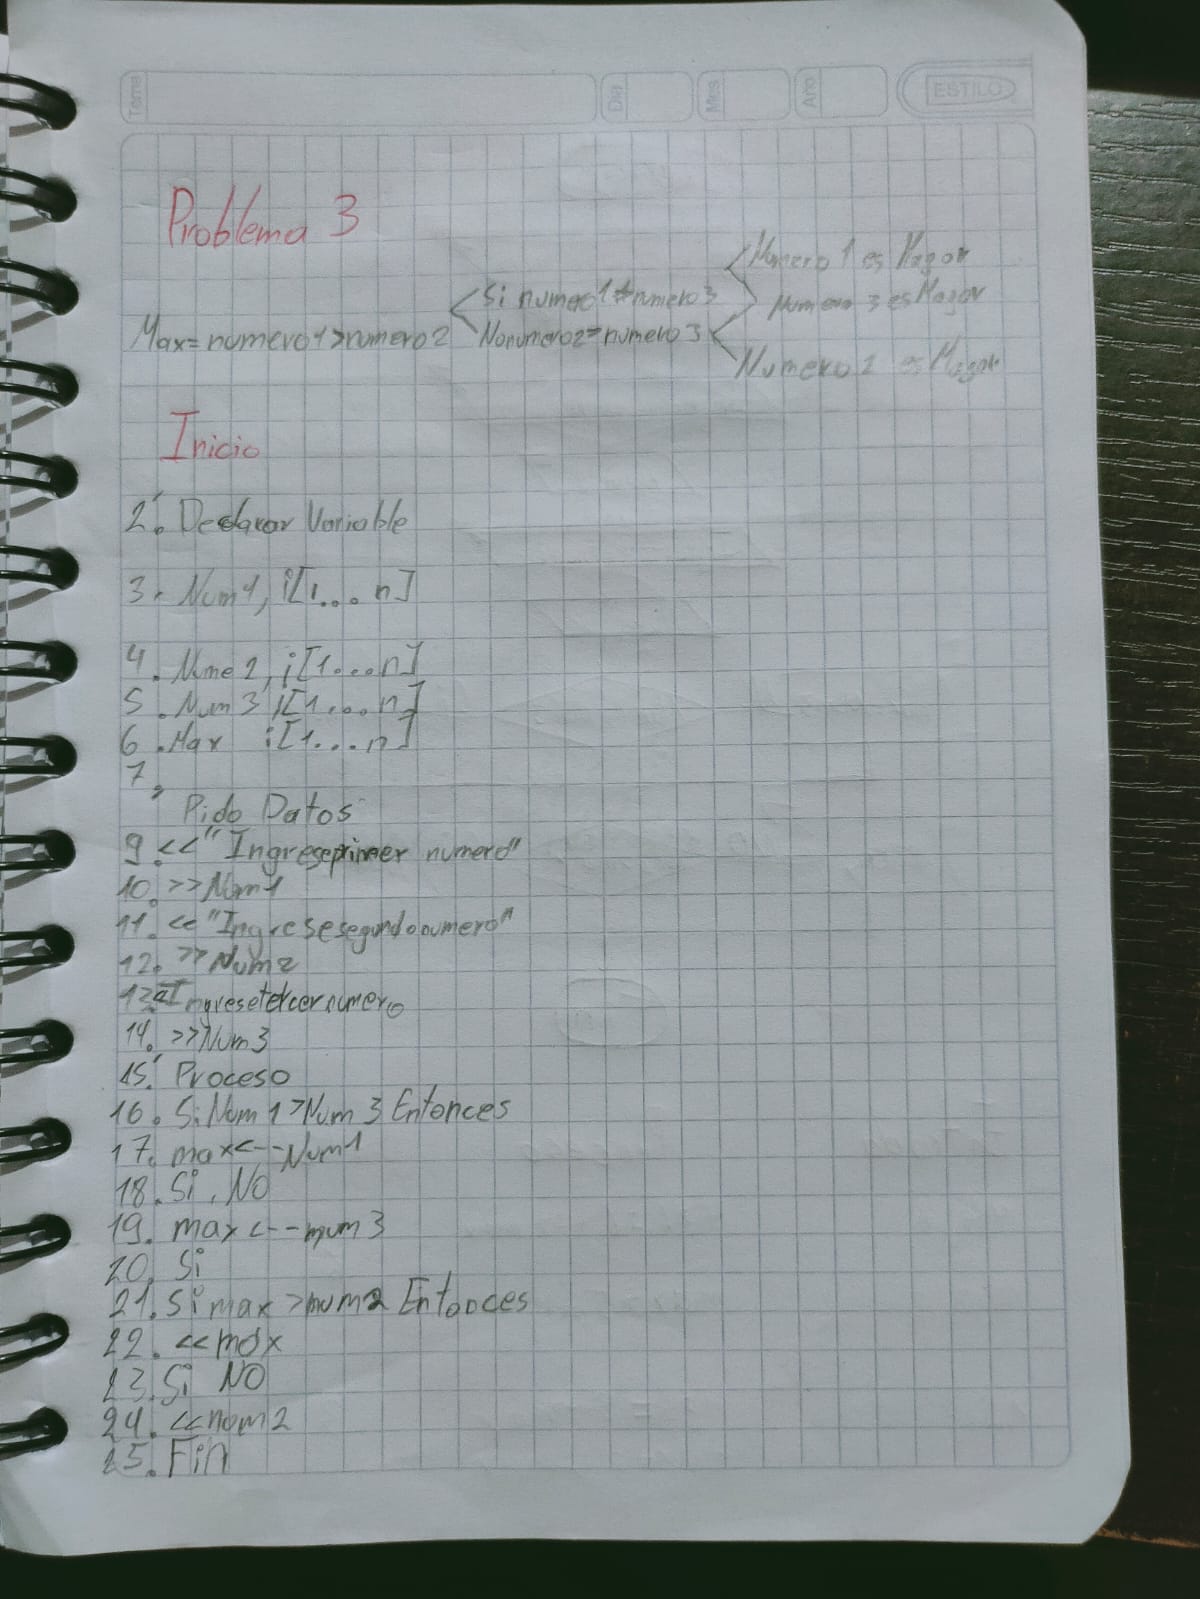 Tema Dia Mes Año ESTILO
Problema 3
Numero 1 es Mayor
Si numero1 numero3
Numero 3 es Mayor
Max=numero1>numero2
Nonumero2=numero3
Numero 2 es Mayor
Inicio
2. Declarar Variable
3. Num1, i[1...n]
4. Nume2, i[1...n]
5. Num3 i[1...n]
6. Max i[1...n]
7.
Pido Datos
9. <<"Ingreseprimer numero"
10. >>Num1
11. <<"Ingresesegundonumero"
12. >>Num2
13. Ingresetercernumero
14. >>Num3
15. Proceso
16. Si Num1>Num3 Entonces
17. max<--Num1
18. Si. NO
19. max<--num3
20. Si
21. Si max>num2 Entonces
22. <<max
23. Si NO
24. <<num2
25. Fin